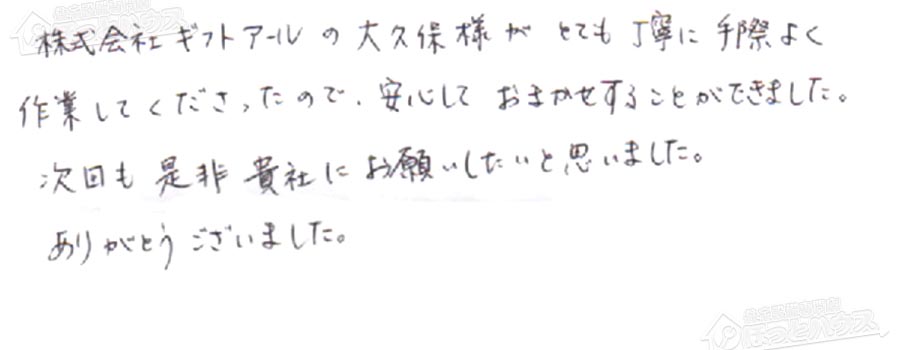 株式会社ギフトアールの大久保様がとても丁寧に手際よく
作業してくださったので、安心しておまかせすることができました。
次回も是非貴社にお願いしたいと思いました。
ありがとうございました。
ほっとハウス